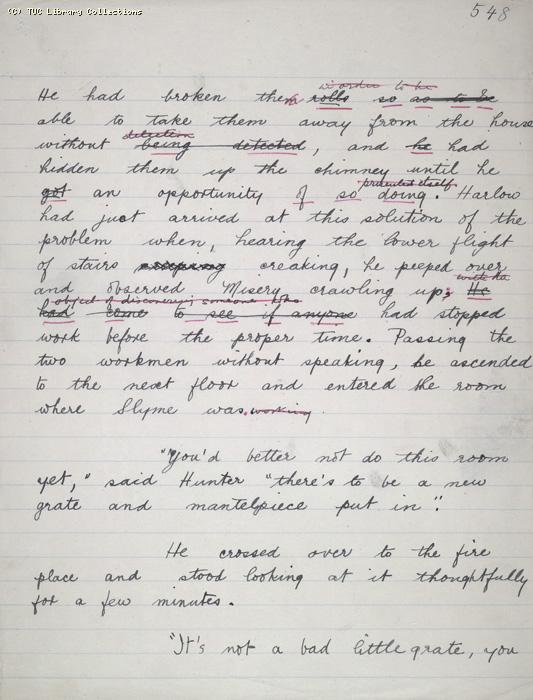 (C) TUC Library Collections
548
in order to be
He had broken the rolls so as to be
able to take them away from the house
detection
without being detected, and he had
hidden them up the chimney until he
presented itself
got an opportunity of so doing. Harlow
had just arrived at this solution of the
problem when, hearing the lower flight
of stairs creeping creaking, he peeped over
with the
and observed Misery crawling up; He
object of discovering someone who
had come to see if anyone had stopped
work before the proper time. Passing the
two workmen without speaking, he ascended
to the next floor and entered the room
where Slyme was working.
"You'd better not do this room
yet," said Hunter "there's to be a new
grate and mantelpiece put in".
He crossed over to the fire
place and stood looking at it thoughtfully
for a few minutes.
"It's not a bad little grate, you